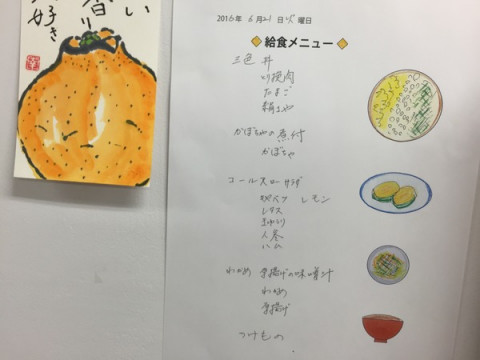 い
香り
好き
2016年 6月21日火曜日
給食メニュー
三色丼
とり挽肉
たまご
かぼちゃの煮付
かぼちゃ
コールスローサラダ
キャベツ レモン
レタス
きゅうり
人参
わかめ 厚揚げの味噌汁
わかめ
厚揚げ
つけもの